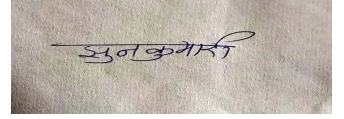 सुनकुमारी